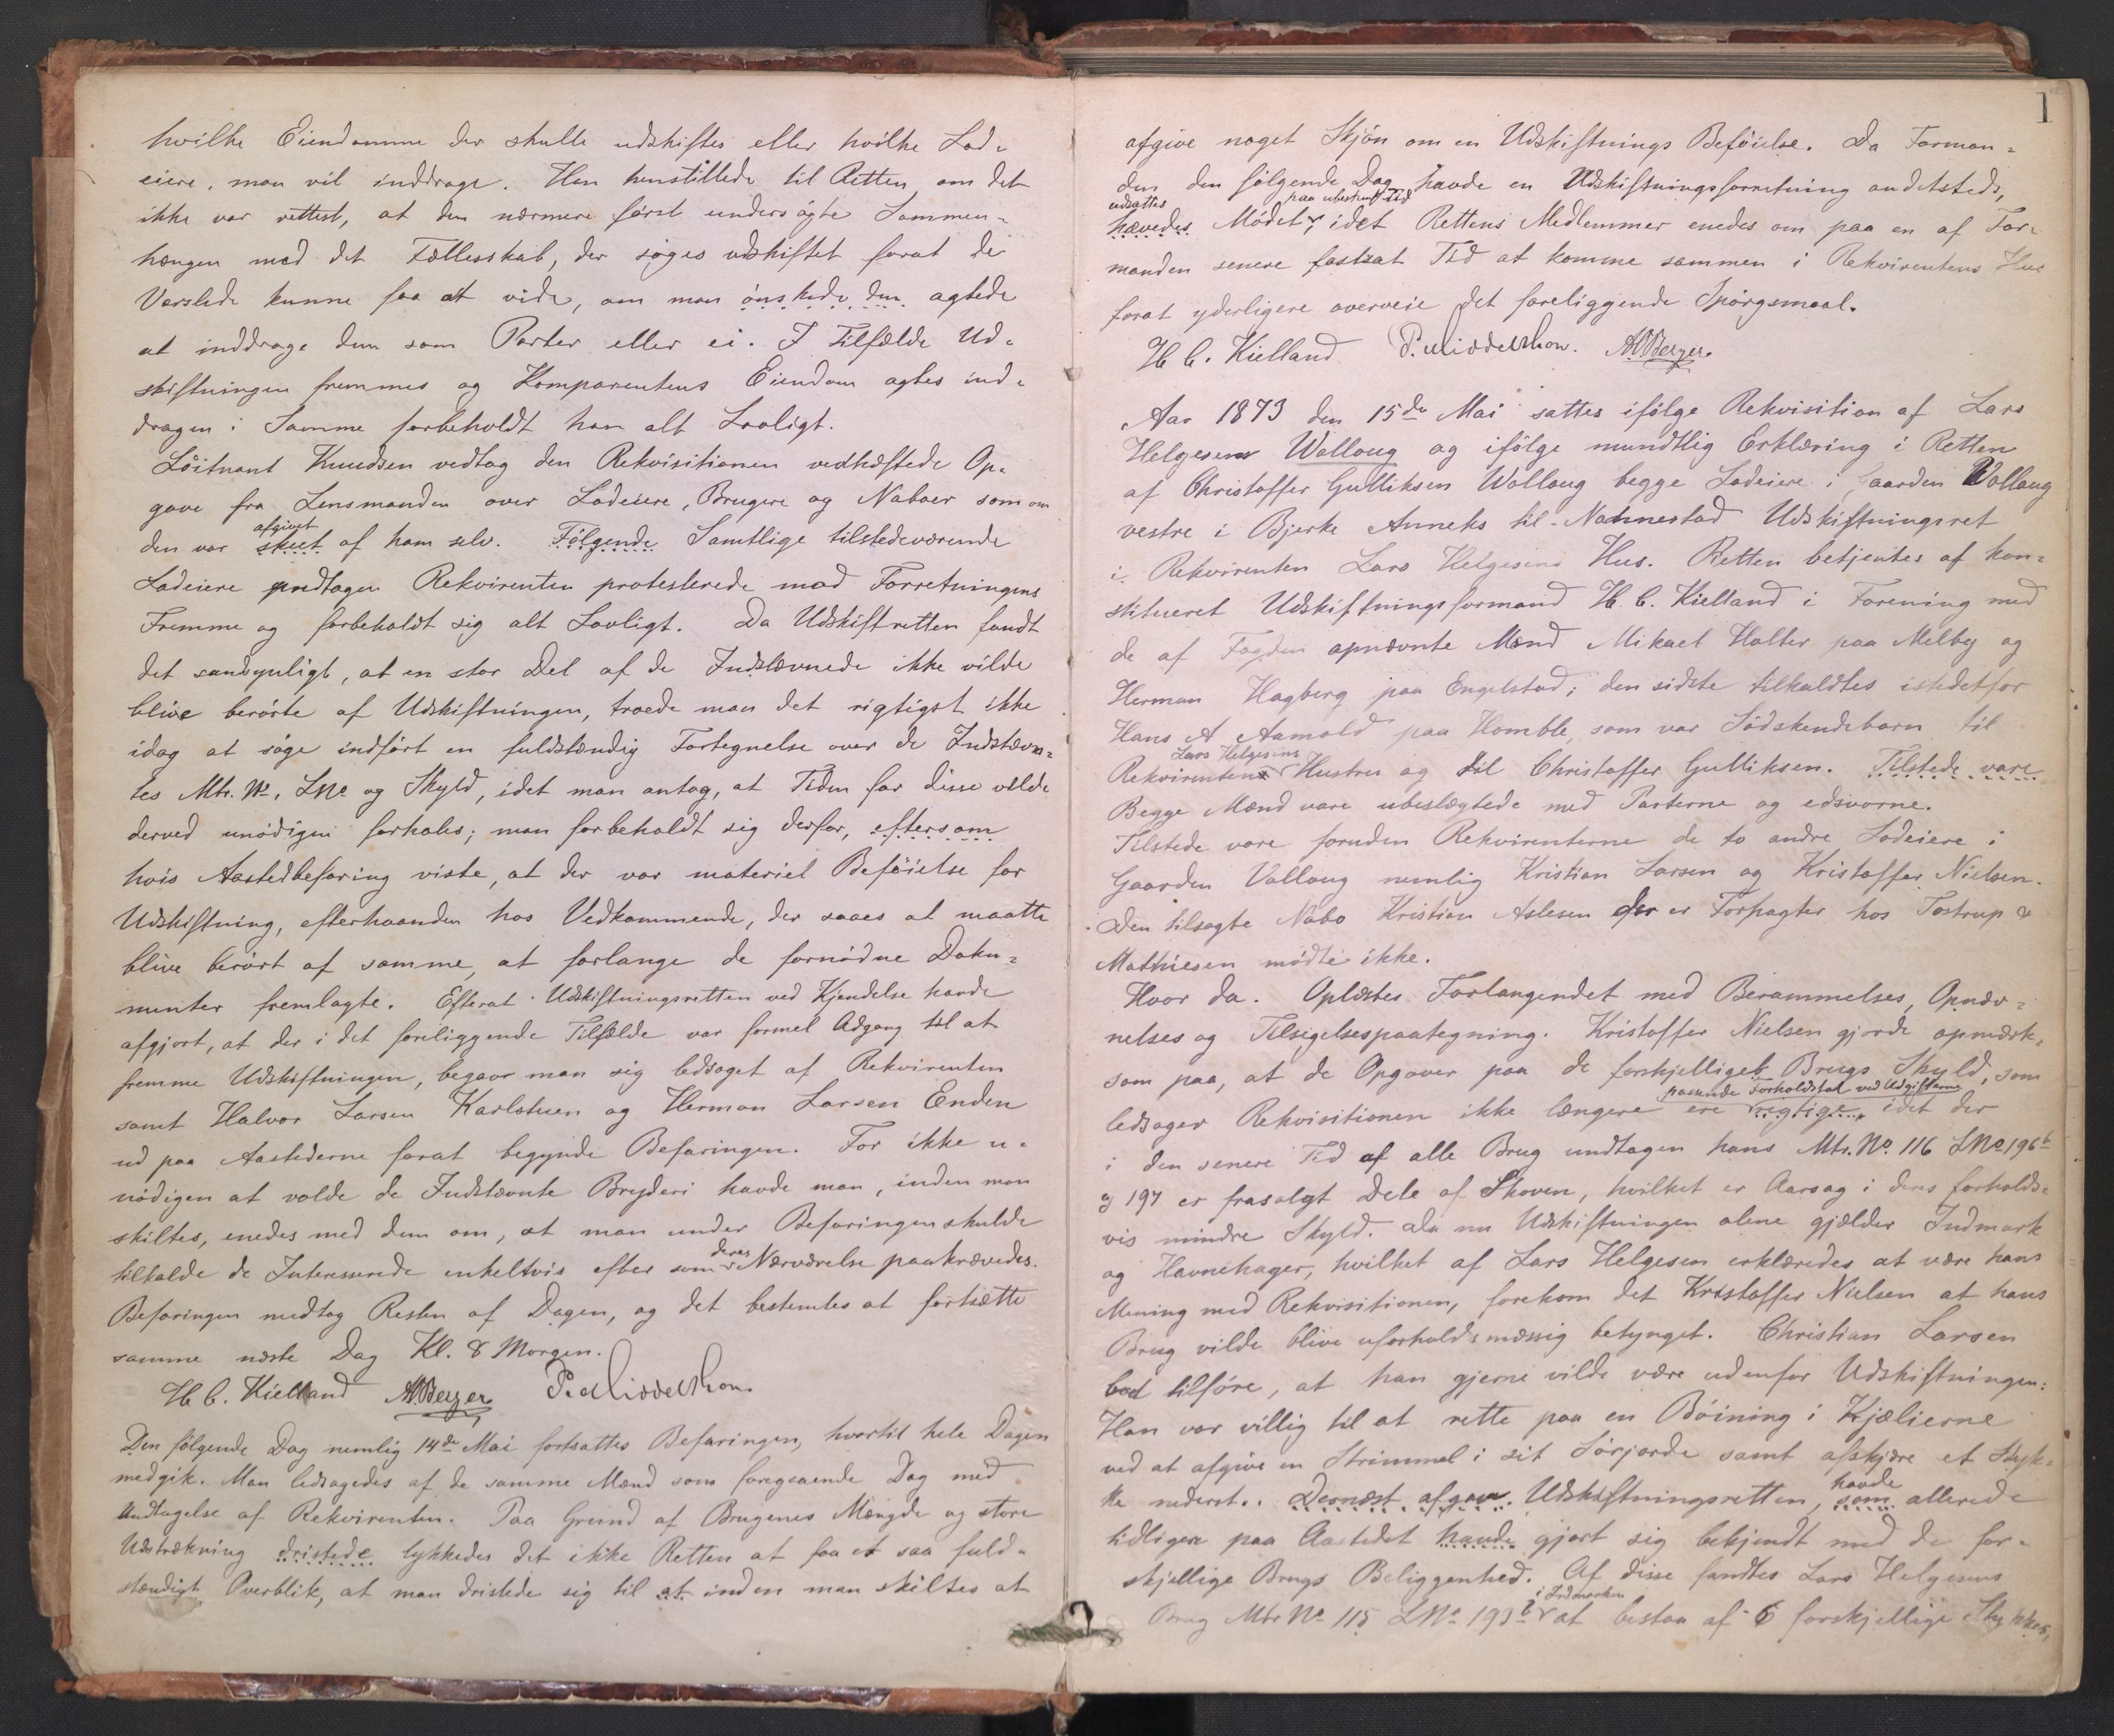 hvilke Eiendomme der skulle udskiftes eller hvilke Lod-
eiere, man vil inddrage. Han henstillede til Retten om det
ikke var rettest, at den nærmere först undersögte Sammen-
hængen med det Fællesskab, der söges udskiftet forat de
Varslede kunne faa at vide, om man önskede den agtede
at inddrage dem som Parter eller ei. I Tilfælde Ud-
skiftningen fremmes og Komparentens Eiendom agtes ind-
dragen i Samme forbeholdt han alt Lovligt.
Löitnant Knudsen vedtog den Rekvisitionen vedhæftede Op-
gave fra Lensmanden over Lodeiere, Brugere og Naboer som om
afgivet
den var skeet af ham selv. Fölgende Samtlige tilstedeværende
Lodeiere undtagen Rekvirenten protesterede mod Forretningens
Fremme og forbeholdt sig alt Lovligt. Da Udskiftretten fandt
det sandsynligt, at en stor Del af de Indstævnede ikke vilde
blive berörte af Udskiftningen, troede man det rigtigst ikke
idag at söge indfört en fuldstændig Fortegnelse over de Indstævn-
tes Mtr. No, LNo og Skyld, idet man antog, at Tiden for disse vilde
derved unödigen forhales; man forbeholdt sig derfor, eftersom
hvis Aastedbefaring viste, at der var materiel Beföielse for
Udskiftning, efterhaanden hos Vedkommende, der saaes at maatte
blive berört af samme, at forlange de fornödne Doku-
menter fremlagte. Efterat Udskiftningsretten ved Kjendelse havde
afgjort, at der i det foreliggende Tilfælde var formel Adgang til at
fremme Udskiftningen, begav man sig ledsaget af Rekvirenten
samt Halvor Larsen Karlstuen og Herman Larsen Enden
ud paa Aastederne forat begynde Befaringen. For ikke u-
nödigen at volde de Indstævnte Bryderi havde man, inden man
skiltes, enedes med dem om, at man under Befaringen skulde
deres
tilkalde de Interesserede enkeltvis efter som Nærværelse paakrævedes.
Befaringen medtog Resten af Dagen, og det bestemtes at fortsætte
samme næste Dag Kl. 8 Morgen.
H. C. Kielland A. Berger P. Middelthon.
Den fölgende Dag nemlig 14de Mai fortsattes Befaringen, hvortil hele Dagen
medgik. Man ledsagedes af de samme Mænd som foregaaende Dag med
Undtagelse af Rekvirenten. Paa Grund af Brugenes Mængde og store
Udstrækning dristede lykkedes det ikke Retten at faa et saa fuld-
stændigt Overblik, at man dristede sig til at inden man skiltes at
1
afgive noget Skjön om en Udskiftnings Beföielse. Da Forman-
den den fölgende Dag havde en Udskiftningsforretning andetsteds,
udsattes paa ubestemt Tid
hævedes Mödet, idet Rettens Medlemmer enedes om paa en af For-
manden senere fastsat Tid at komme sammen i Rekvirentens Hus
forat yderligere overveie det foreliggende Spörgsmaal.
H. C. Kielland P. Middelthon. A. Berger.
Aar 1873 den 15de Mai sattes ifölge Rekvisition af Lars
Helgesen Wollaug og ifölge mundtlig Erklæring i Retten
af Christoffer Gulliksen Wollaug begge Lodeiere i Gaarden Vollaug
vestre i Bjerke Anneks til Nannestad Udskiftningsret
i Rekvirenten Lars Helgesens Hus. Retten betjentes af kon-
stitueret Udskiftningsformand H. C. Kielland i Forening med
de af Fogden opnævnte Mænd Mikael Holter paa Melby og
Herman Hagberg paa Engelstad; den sidste tilkaldtes istedetfor
Hans A Aamold paa Homble, som var Södskendebarn til
Lars Helgesens
Rekvirentens Hustru og til Christoffer Gulliksen. Tilstede vare
Begge Mænd vare ubeslægtede med Parterne og edsvorne.
Tilstede vare foruden Rekvirenterne de to andre Lodeiere i
Gaarden Vollaug nemlig Kristian Larsen og Kristoffer Nielsen.
Den tilsagte Nabo Kristian Aslesen der er Forpagter hos Tostrup &
Mathiesen mödte ikke.
Hvor da. Oplæstes Forlangendet med Berammelses, Opnæv-
nelses og Tilsigelsespaategning. Kristoffer Nielsen gjorde opmærk-
som paa, at de Opgaver paa de forskjellige Brugs Skyld, som
passende Forholdstal ved Udgifterne
ledsager Rekvisitionen ikke længere ere rigtige, idet der
i den senere Tid af alle Brug undtagen hans Mtr. No. 116 LNo 196b
og 197 er frasolgt Dele af Skoven, hvilket er Aarsag i deres forholds-
vis mindre Skyld. Da nu Udskiftningen alene gjælder Indmark
og Havnehager, hvilket af Lars Helgesen erklæredes at være hans
Mening med Rekvisitionen, forekom det Kristoffer Nielsen at hans
Brug vilde blive uforholdsmæssig betynget. Christian Larsen
bad tilföre, at han gjerne vilde være udenfor Udskiftningen:
Han var villig til at rette paa en Böining i Kjælierne
ved at afgive en Strimmel i sit Sörjorde samt afskjære et Styk-
ke nederst. Dernæst afgav Udskiftningsretten, som allerede
havde
tidligere paa Aastedet havde gjort sig bekjendt med de for-
skjellige Brugs Beliggenhed. Af disse fandtes Lars Helgesens
i Indmarken
Brug Mtr No 115 LNo 193b at bestaa af 6 forskjellige Stykker,